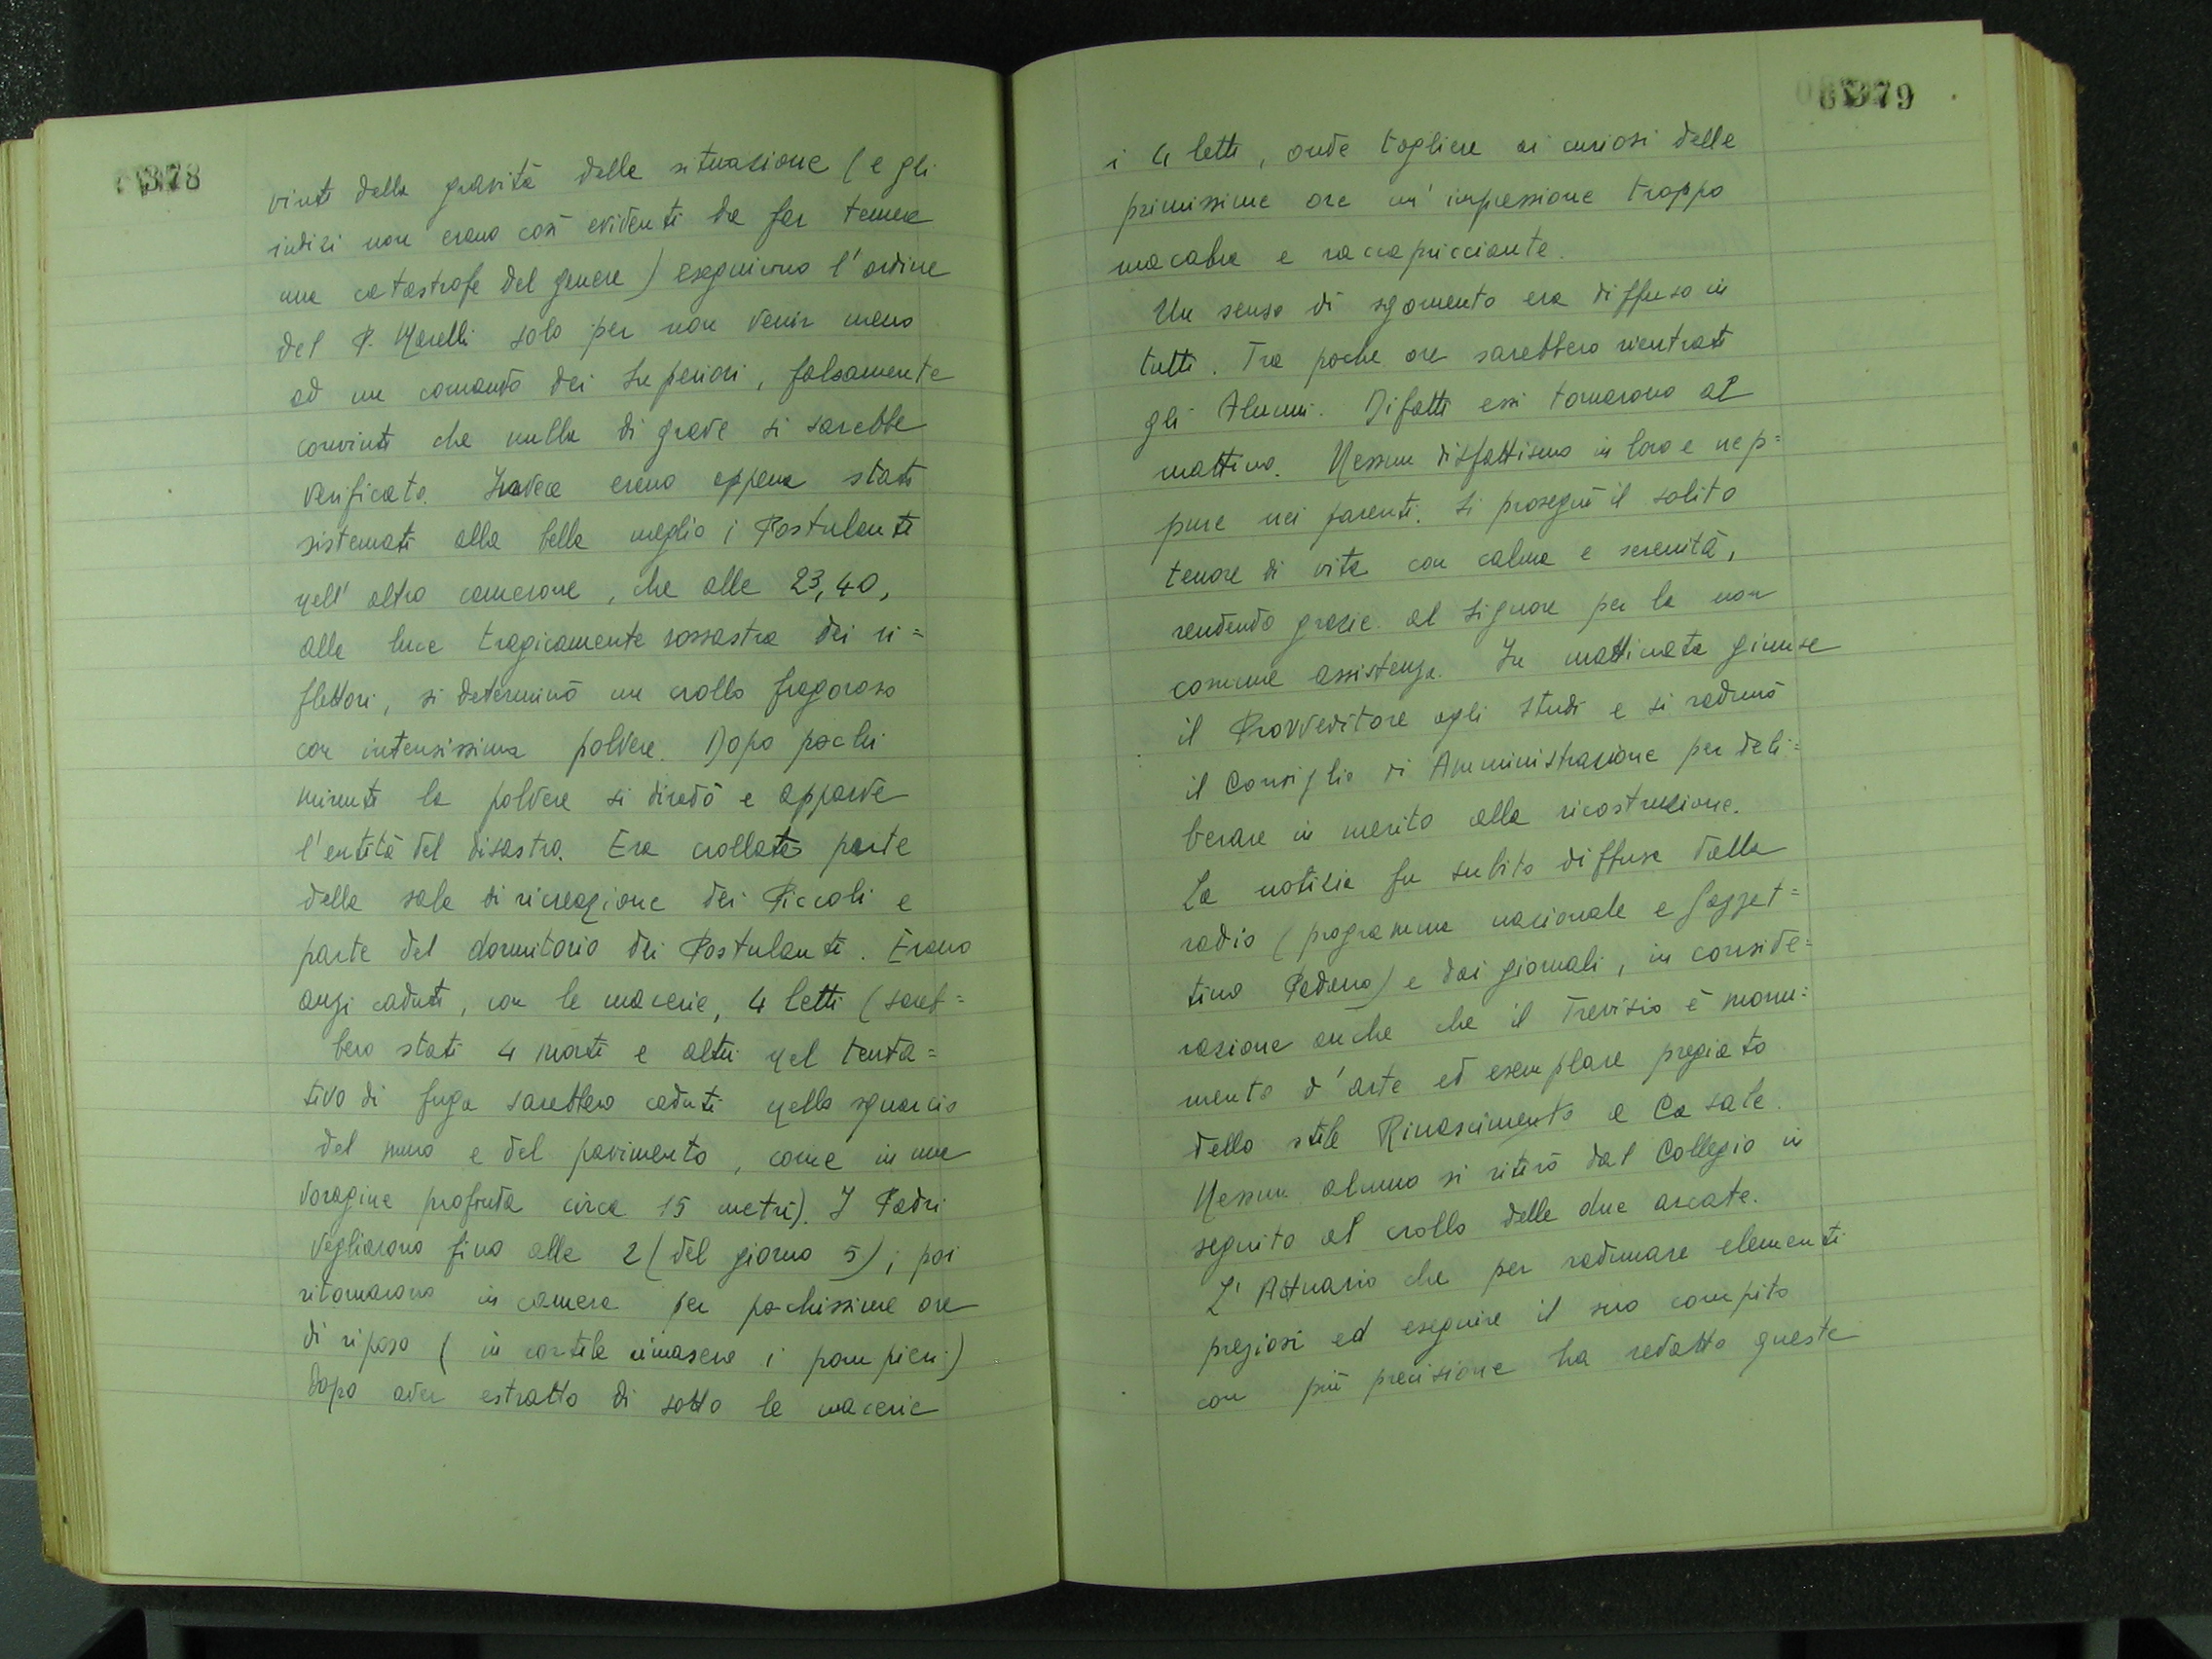 378
vinti della gravità della situazione (e gli
indizi non erano così evidenti da far temere
una catastrofe del genere) eseguirono l'ordine
del P. Marelli solo per non venir meno
ad un comando dei Superiori, falsamente
convinti che nulla di grave si sarebbe
verificato. Invece erano appena stati
sistemati alla bella meglio i Postulanti
nell'altro camerone, che alle 23,40,
alla luce tragicamente rossastra dei ri=
flettori, si determinò un crollo fragoroso
con intensissima polvere. Dopo pochi
minuti la polvere si diradò e apparve
l'entità del disastro. Era crollata parte
della sala di ricreazione dei Piccoli e
parte del dormitorio dei Postulanti. Erano
anzi caduti, con le macerie, 4 letti (sareb=
bero stati 4 morti e altri nel tenta=
tivo di fuga sarebbero caduti nello squarcio
del muro e del pavimento, come in una
voragine profonda circa 15 metri). I Padri
vegliarono fino alle 2 (del giorno 5); poi
ritornarono in camera per pochissime ore
di riposo (in cortile rimasero i pompieri)
dopo aver estratto di sotto le macerie
379
i 4 letti, onde togliere ai curiosi delle
primissime ore un'impressione troppo
macabra e raccapricciante.
Un senso di sgomento era diffuso in
tutti. Tra poche ore sarebbero rientrati
gli Alunni. Difatti essi tornarono al
mattino. Nessun disfattismo in loro e nep=
pure nei parenti. Si proseguì il solito
tenore di vita con calma e serenità,
rendendo grazie al Signore per la non
comune assistenza. In mattinata giunse
il Provveditore agli Studi e si radunò
il Consiglio di Amministrazione per deli=
berare in merito alla ricostruzione.
La notizia fu subito diffusa dalla
radio (programma nazionale e Gazzet=
tino Padano) e dai giornali, in conside=
razione anche che il Trevisio è monu=
mento d'arte ed esemplare pregiato
dello stile Rinascimento a Casale.
Nessun alunno si ritirò dal Collegio in
seguito al crollo delle due arcate.
L'Attuario che per radunare elementi
preziosi ed eseguire il suo compito
con più precisione ha redatto queste